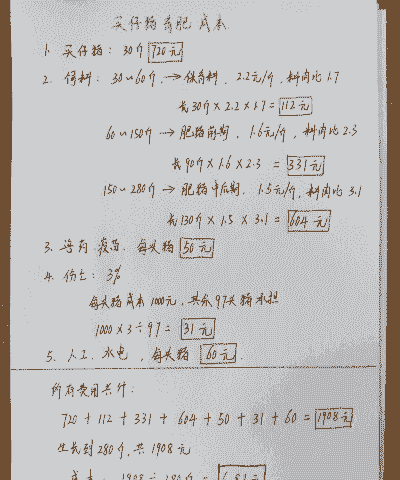 买仔猪育肥成本
1. 买仔猪: 30斤 720元
2. 饲料: 30~60斤, → 保育料, 2.2元/斤, 料肉比1.7
长30斤×2.2×1.7=112元
60~150斤 → 肥猪前期, 1.6元/斤, 料肉比2.3
长90斤×1.6×2.3 = 331元
150~280斤 → 肥猪中后期, 1.5元/斤, 料肉比3.1
长130斤×1.5×3.1=604元
3. 兽药 疫苗, 每头猪 50元
4. 伤亡: 3%
每头猪成本1000元, 其余97头猪承担
1000×3÷97= 31元
5. 人工、水电, 每头猪 60元.
所有费用共计:
720+112+331+604+50+31+60=1908元
生长到280斤, 共1908元
成本: 1908÷280斤=